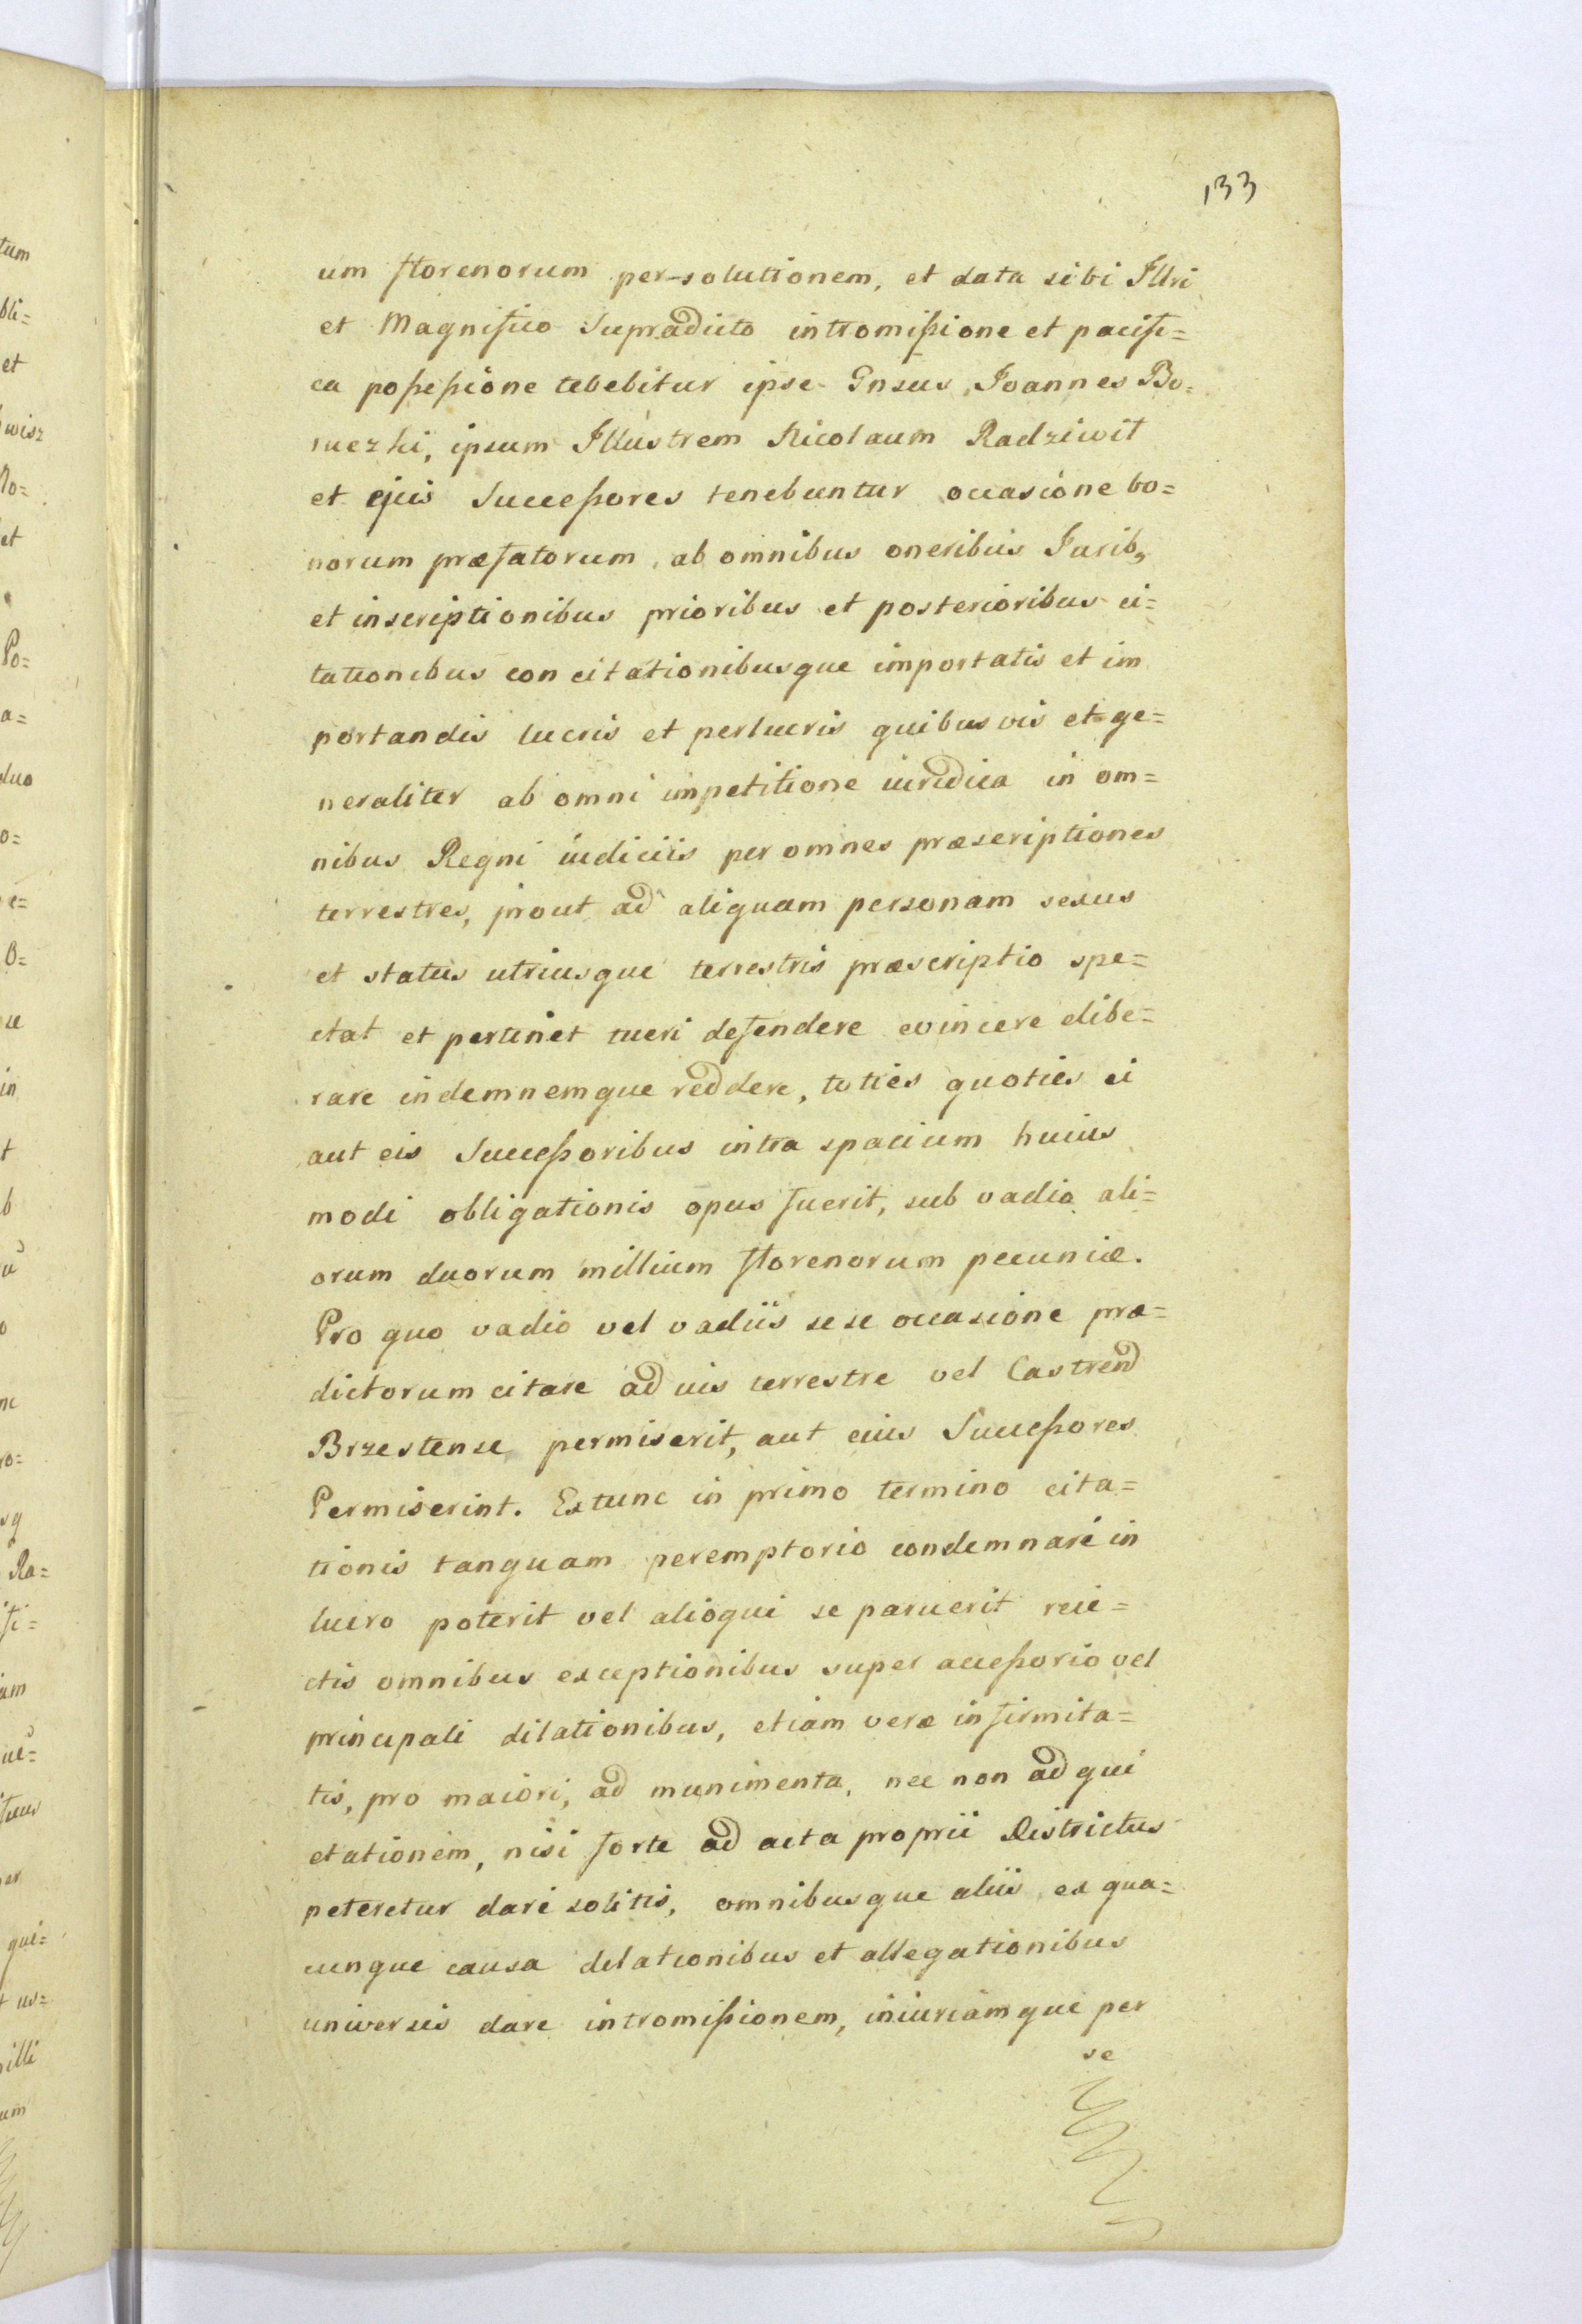 133
um florenorum per-solutionem, et data sibi Illri
et Magnifico Supradicto intromißione et pacifi=
ca poßeßione tebebitur ipse Gnsus, Joannes Bo=
ruczki, ipsum Illustrem Nicolaum Radziwit
et ejus Succeßores tenebuntur occasione bo=
norum præfatorum, ab omnibus oneribus Jurib,
et inscriptionibus prioribus et posterioribus ci=
tationibus con citationibusque importatis et im
portandis lucris et perlucris quibus vis et ge=
neraliter ab omni impetitione iuridica in om=
nibus Regni iudiciis per omnes præscriptiones
terrestres, prout ad aliquam personam sexus
et status utriusque terrestris præscriptio spe=
ctat et pertinet tueri defendere evincere elibe=
rare indemnemque reddere, toties quoties ei
aut eis Succeßoribus intra spacium huius
modi obligationis opus fuerit, sub vadio ali=
orum duorum millium florenorum pecuniæ.
Pro quo vadio vel vadiis sese occasione præ=
dictorum citare ad ius terrestre vel Castrend
Brzestense permiserit, aut eius Succeßores
Permiserint. Extunc in primo termino cita=
tionis tanquam peremptorio condemnari in
lucro poterit vel alioqui se paruerit reie=
ctis omnibus exceptionibus super acceßorio vel
principali dilationibus, etiam veræ infirmita=
tis, pro maiori, ad munimenta, nec non ad qui
etationem, nisi forte ad acta proprii Districtus
peteretur dari solitis, omnibusque aliis ex qua=
cunque causa dilationibus et allegationibus
universis dare intromißionem, iniuriamque per
se
tum
bli=
et
wisz
No=
et
Po=
a=
duo
o=
e=
B=
in
t
b
Ra=
fi=
um
qui=
illi
um